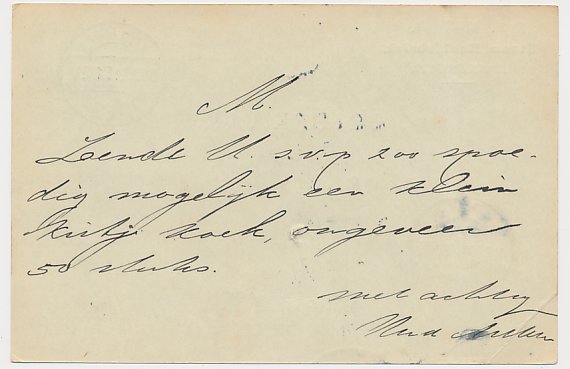 M.
Zende U. s.v.p zoo spoe-
dig mogelijk een klein
kistje koek, ongeveer
50 stuks.
met achtg